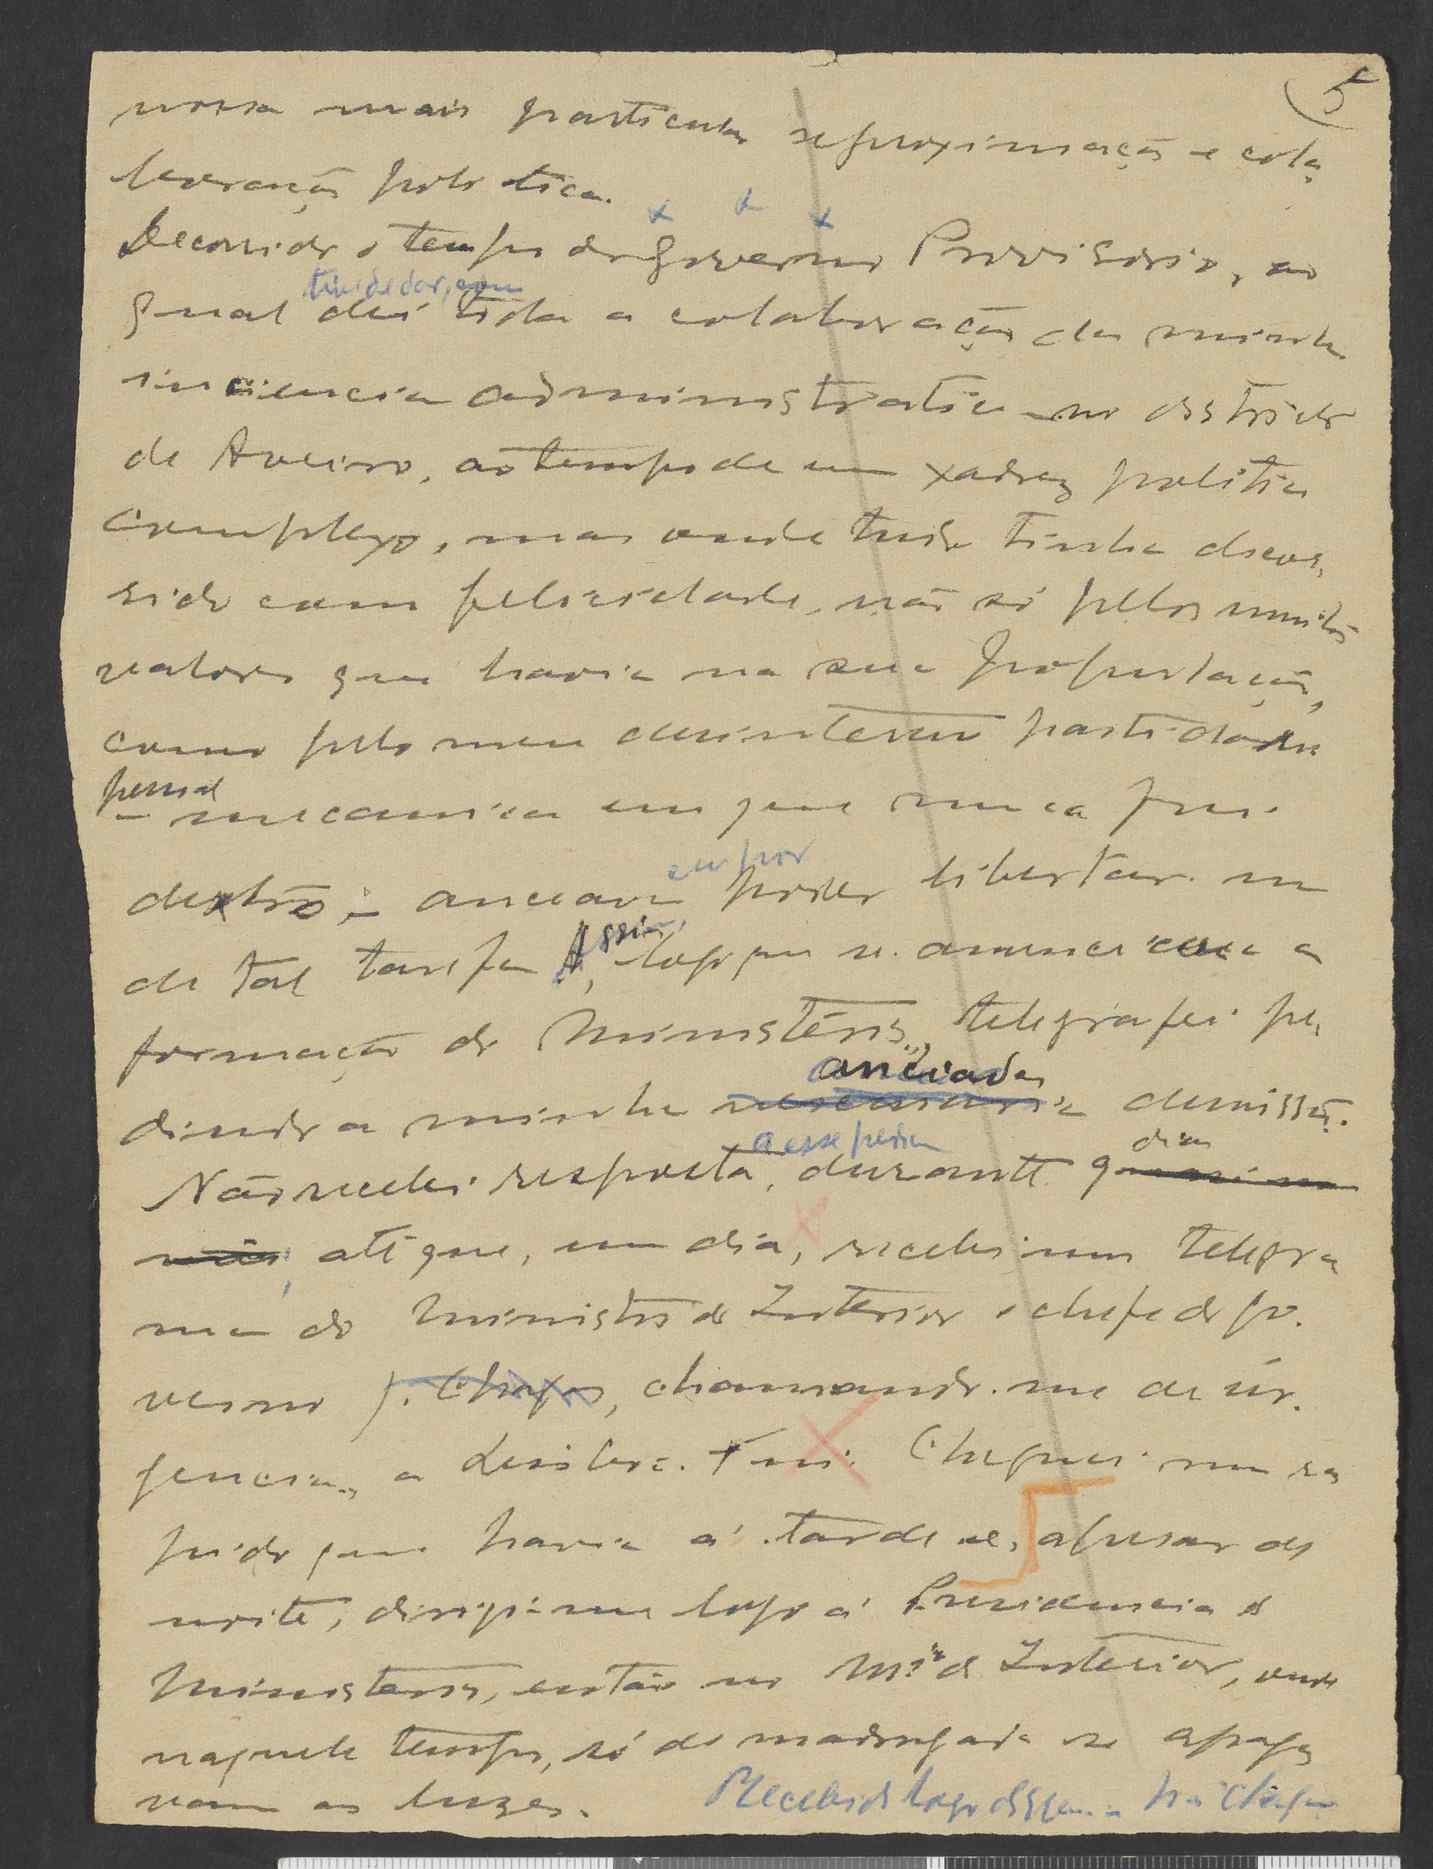 5
nossa mais particular aproximação e cola
boração politica.
x x x
Decorrido o tempo do Governo Provisorio, ao
qual dei toda a colaboração da minha
administrativa no districto
de Aveiro, ao tempo de um xadrez politico
complexo, mas onde tudo tinha decor
rido com felicidade, não só pelos muitos
valores que havia na sua população,
como pelo meu desinteresse partidario
pessoal
- mecanica em que nunca fui
eu por
dextro, - anceava poder libertar-me
de tal tarefa. Assim, logo que se anunciava a
formação do Ministério, telegrafei pe
anciada
dindo a minha necessaria demissão.
a esse pedido
dias
Não recebi resposta, durante quasi um
mês, até que, um dia, recebi um telegra
ma do Ministro do Interior e chefe do go
verno J. Chagas, chamando-me de ur
gencia, a Lisboa. Fui. Cheguei num rá
pido que havia á tarde e, apesar de
noite, dirigi-me logo á Presidencia do
Ministerio, então no Mº do Interior, onde
naquele tempo, só de madrugada se apaga
vam as luzes.